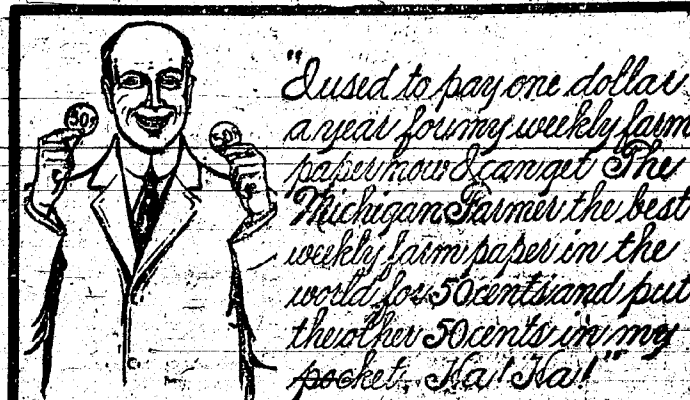 50¢ 50¢
"I used to pay one dollar
a year for my weekly farm
paper now I can get The
Michigan Farmer the best
weekly farm paper in the
world for 50 cents and put
the other 50 cents in my
pocket, Ha! Ha!"